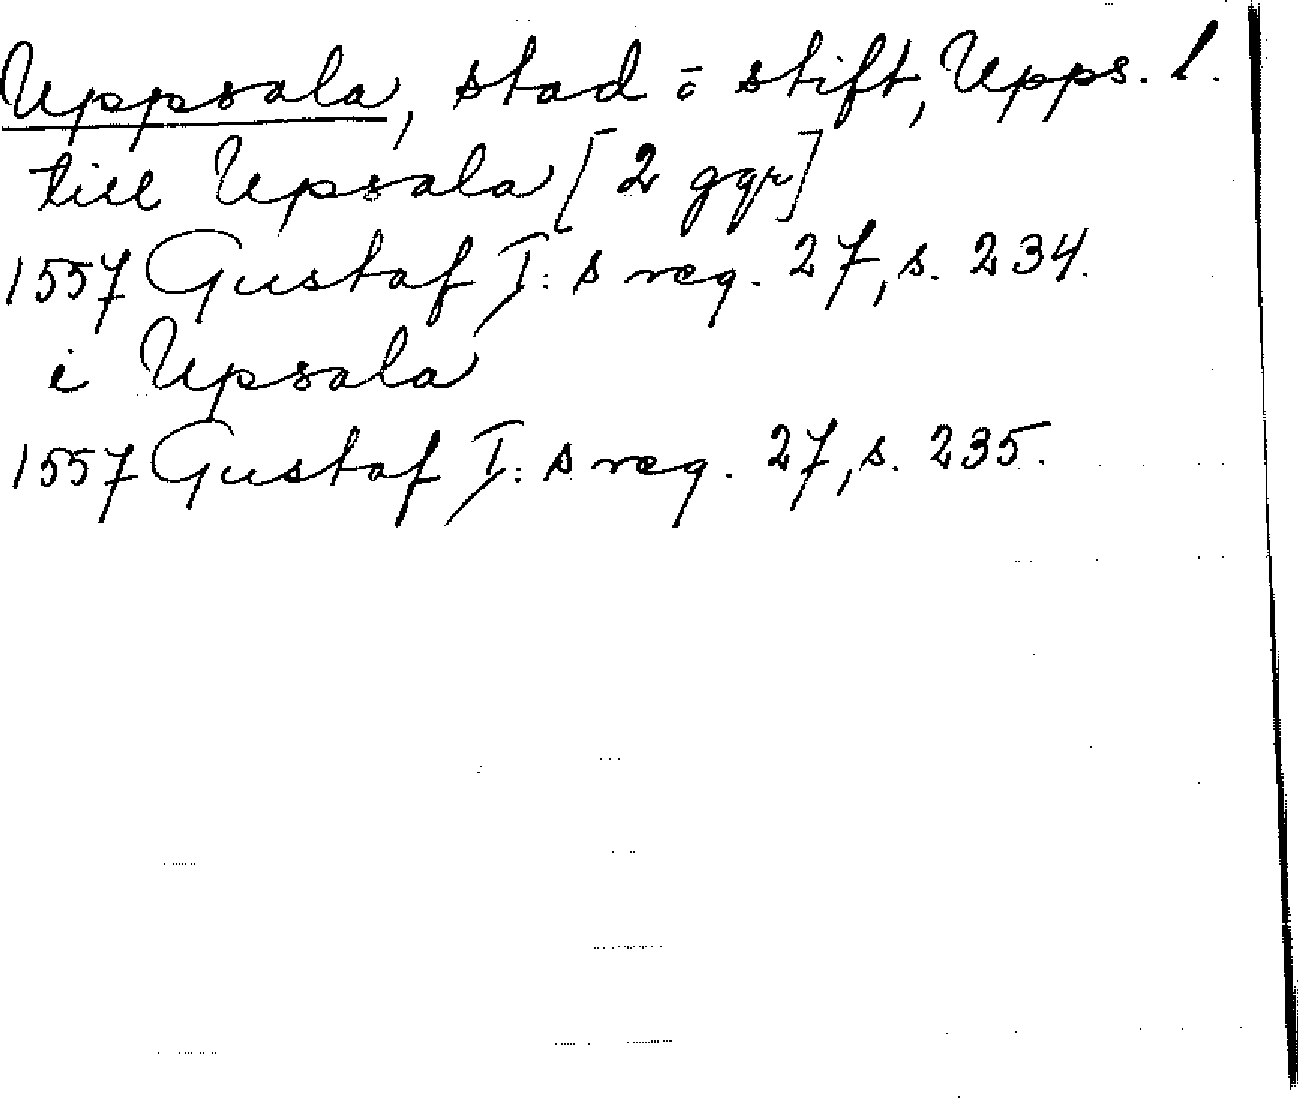 Uppsala, stad o stift, Upps. l.
till Upsala [2 ggr]
1557 Gustaf I:s reg. 27, s. 234.
i Upsala
1557 Gustaf I:s reg. 27, s. 235.